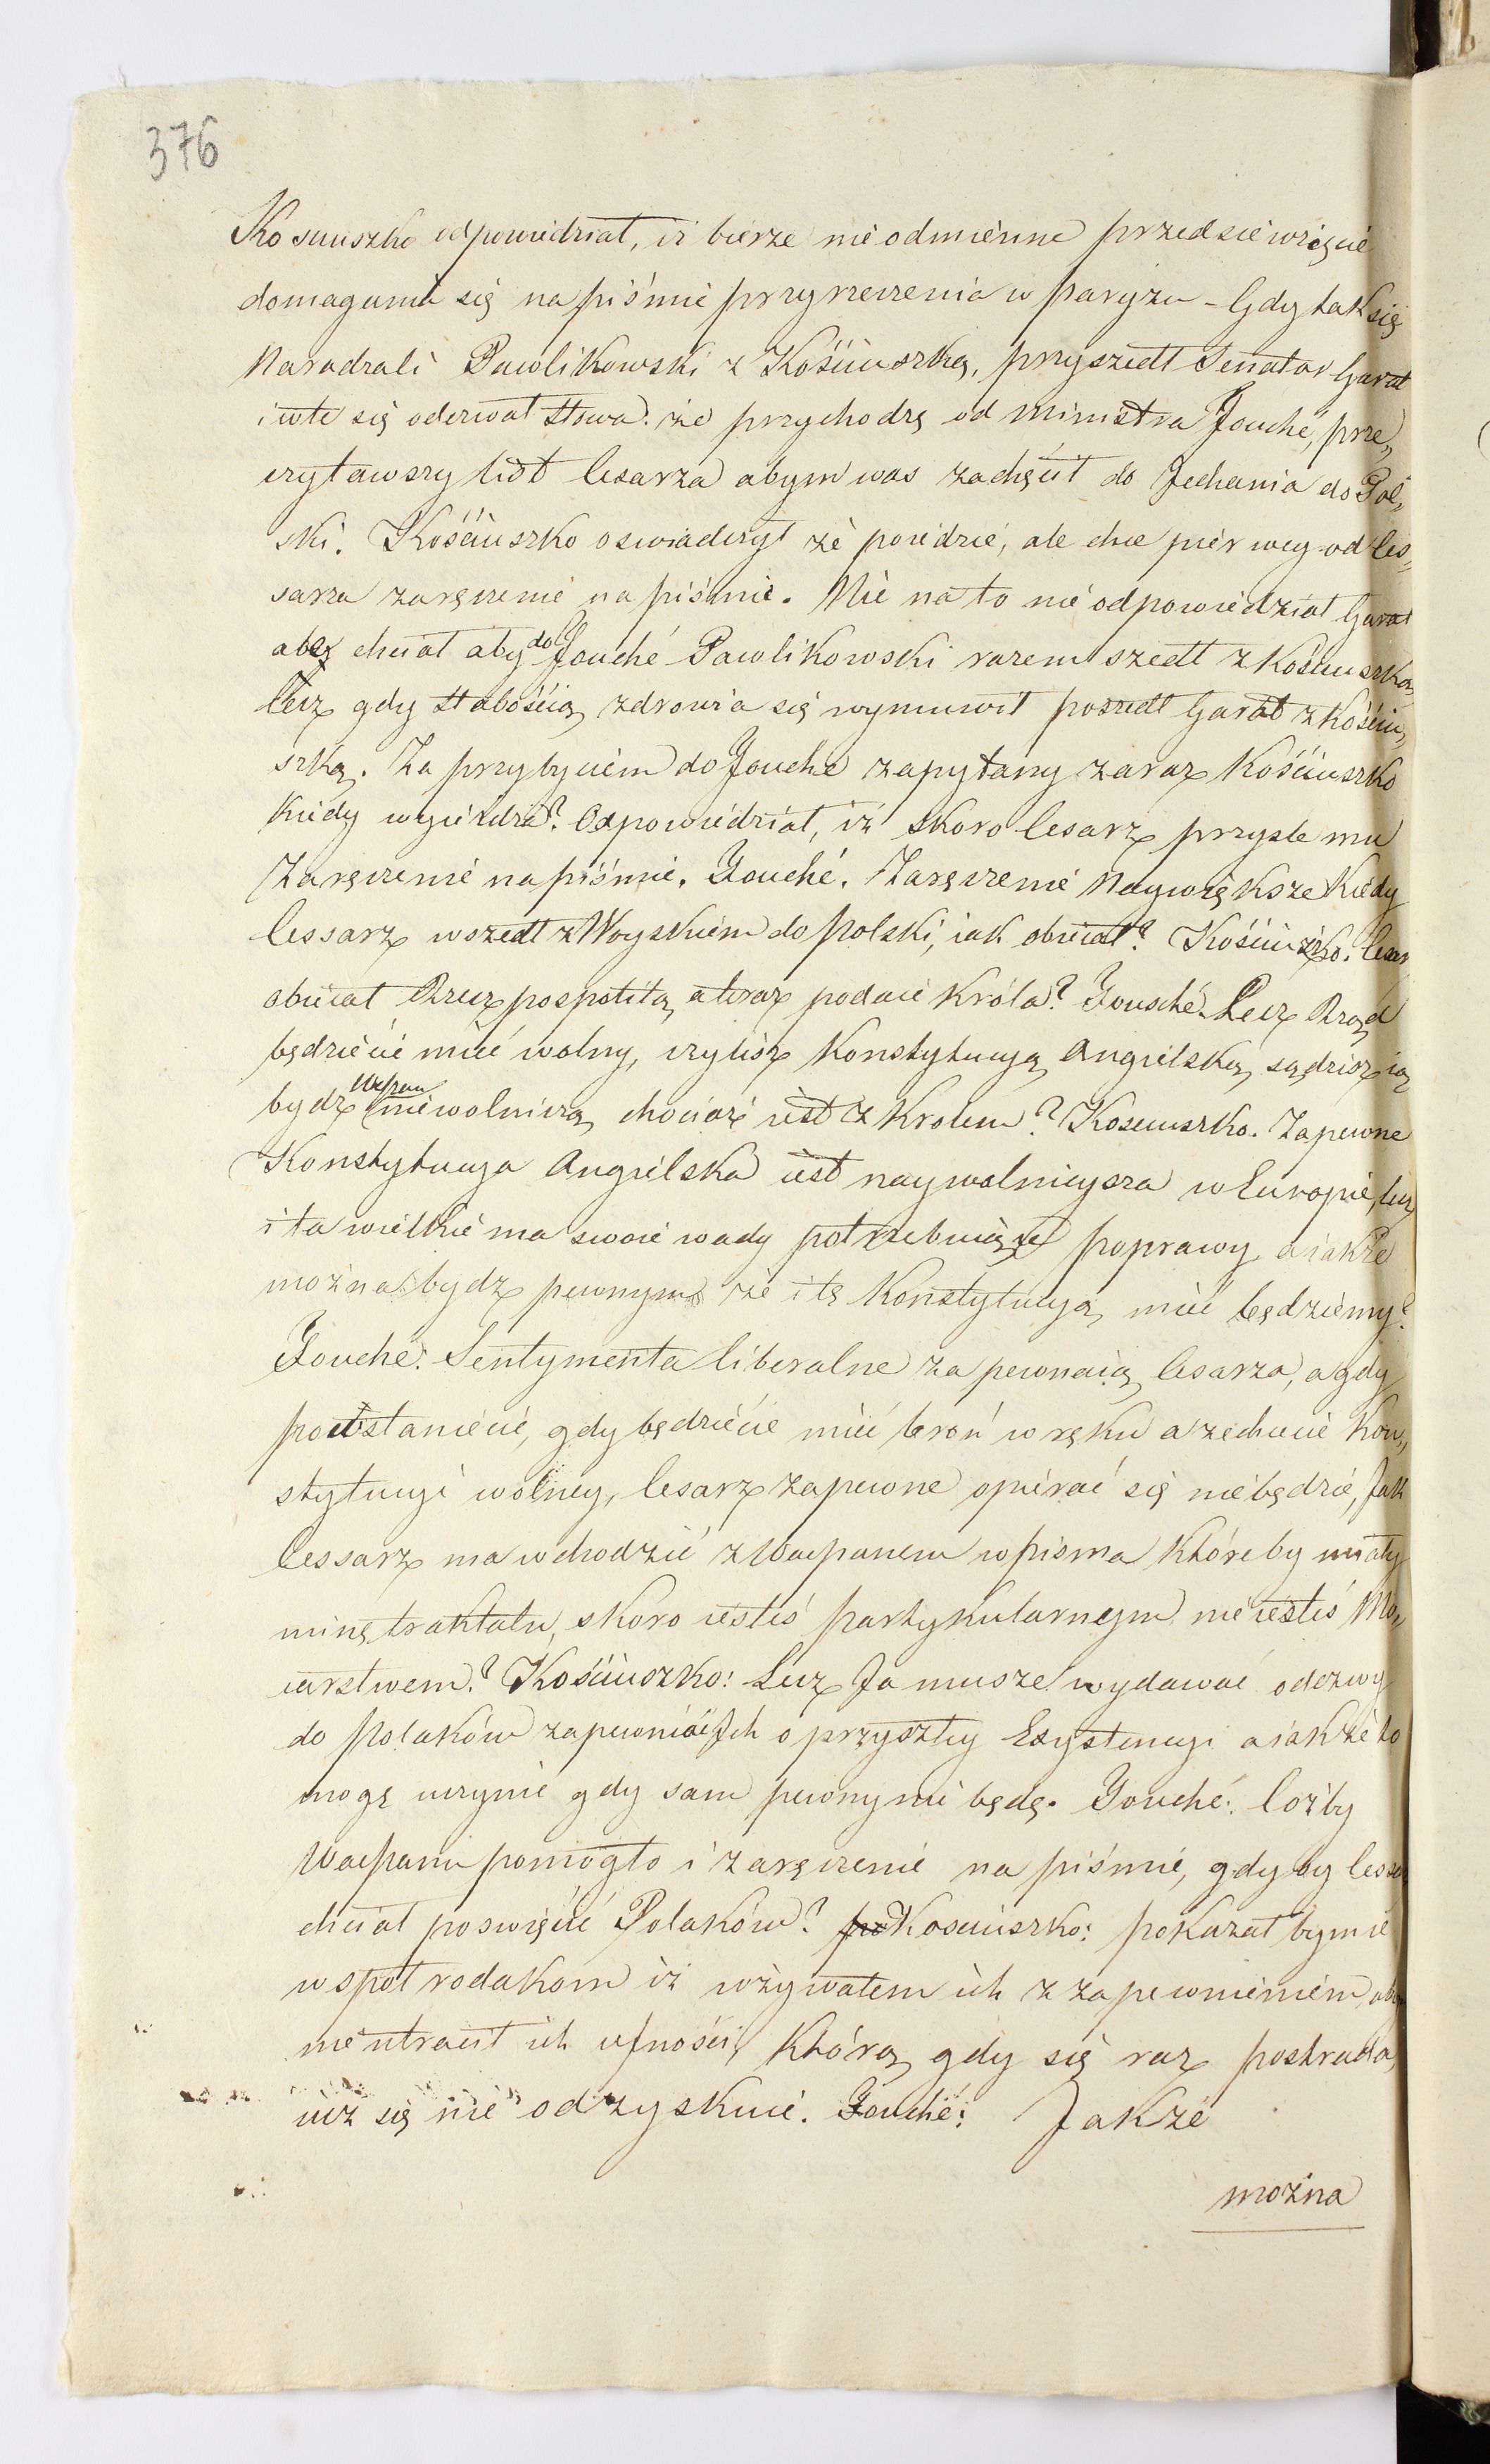 376
Kosciuszko odpowiedział, iż bierze nieodmienne przedsiewzięcie
domagania się na piśmie przyrzeczenia w paryżu – Gdy tak się
Naradzali Pawlikowski z Kościuszką, przyszedł Senator Garat
i w te się oderwał słowa: że przychodzę od Ministra Fouché, prze„
czytawszy list Cesarza abym was zachęcił do Jechania do Pol„
ski. Kościuszko oswiadczył że poiedzie, ale chce pierwey od Ces„
sarza zaręczenie na piśmie. Nic na to nie odpowiedział Garat
chciał aby do Fouché Pawlikowski razem szedł z Kościuszką,
lecz gdy słabością zdrowia się wymuwił poszedł Garat z Kościu„
szką. Za przybyciem do Fouché zapytany zaraz Kościuszko
Kiedy wyieżdża? Odpowiedział, iż skoro Cesarz przyszle mu
Zaręczenie na piśmie. Fouché. Zaręczenie Naywiększe Kiedy
Cessarz wszedł z Woyskiem do Polski, iak obiecał? Kościuszko. Cesarz
obiecał Rzeczpospolitą, a teraz podaie Króla? Fousché. Lecz Rząd
będziecie mieć wolny, czyliż Konstytucyą Angielską, sądzisz ią
bydz Wcpan niewolniczą, chociaż iest z Krolem? Kosciuszko. Zapewne
Konstytucya Angielska iest naywolnieysza w Europie, lecz
i ta wielkie ma swoie wady potrzebuiące poprawy, a iakże
można bydz pewnym że i tę Konstytucyą mieć będziemy?
Fouché: Sentymenta liberalne zapewnaią Cesarza, a gdy
powstaniecie, gdy będziecie mieć broń w ręku a zechcecie Kon„
stytucyi wolney, Cesarz zapewne opierać się nie będzie, Jak
Cessarz ma wchodzić z Wacpanem w pisma któreby miały
minę traktatu, skoro iesteś partykularnym nie iesteś Mo„
carstwem? Kościuszko: Lecz Ja musze wydawać odezwy
do Polaków zapewniać Jch o przyszłey Exystencyi a iakże to
mogę uczynić gdy sam pewny nie będę. Fouché: Cóżby
Wacpanu pomogło i zaręczenie na piśmie, gdyby Cessarz
chciał poswięcić Polaków? Kosciuszko: pokazał bym ie
wspołrodakom iż wzywałem ich z zapewnieniem, abym
nie utracił ich ufności, Którą gdy się raz postrada,
iuż się nie odzyskuie. Fouché: Jakże
można